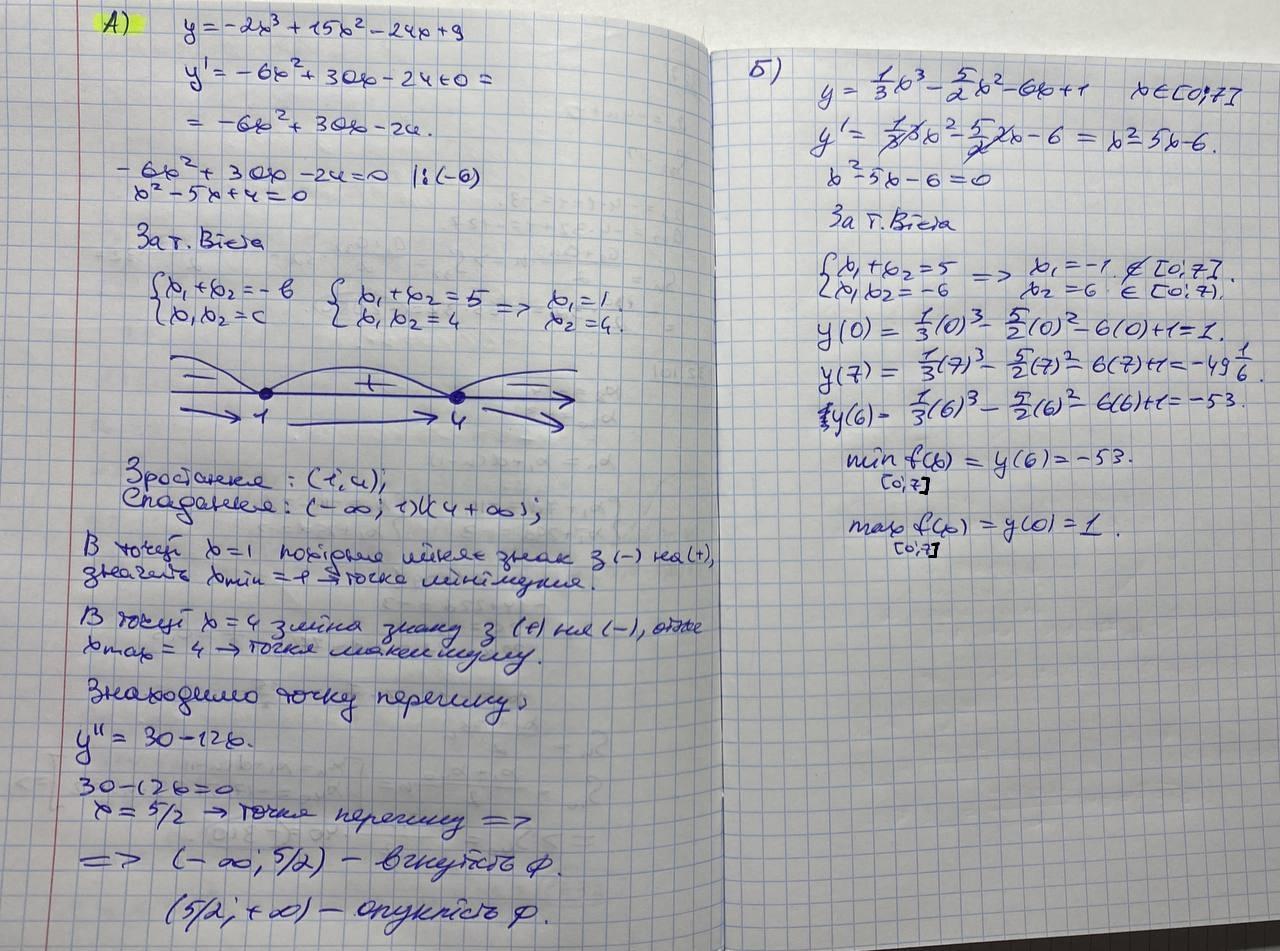 А) y = -2x³ + 15x² - 24x + 9
y' = -6x² + 30x - 24 + 0 =
= -6x² + 30x - 24.
-6x² + 30x - 24 = 0 |:(-6)
x² - 5x + 4 = 0
За т. Вієта
{x₁ + x₂ = -b {x₁ + x₂ = 5 => x₁ = 1
{x₁x₂ = c {x₁x₂ = 4 x₂ = 4.
- + -
1 4
Зростання : (1;4);
Спадання : (-∞; 1)∪(4 +∞);
В точці x = 1 похідна міняє знак з (-) на (+),
значить xmin = 1 → точка мінімуму.
В точці x = 4 зміна знаку з (+) на (-), отже
xmax = 4 → точка максимуму.
Знаходимо точку перегину:
y'' = 30 - 12x.
30 - 12x = 0
x = 5/2 → точка перегину =>
=> (-∞; 5/2) - вгнутість ф.
(5/2; +∞) - опуклість ф.
Б)
y = 1/3 x³ - 5/2 x² - 6x + 1 x ∈ [0;7]
y' = 1/3 3x² - 5/2 2x - 6 = x² - 5x - 6.
x² - 5x - 6 = 0
За т. Вієта
{x₁ + x₂ = 5 => x₁ = -1 ∉ [0;7].
{x₁x₂ = -6 x₂ = 6 ∈ [0;7).
y(0) = 1/3(0)³ - 5/2(0)² - 6(0) + 1 = 1.
y(7) = 1/3(7)³ - 5/2(7)² - 6(7) + 1 = -49 1/6.
y(6) = 1/3(6)³ - 5/2(6)² - 6(6) + 1 = -53.
min f(x) = y(6) = -53.
[0;7]
max f(x) = y(0) = 1.
[0;7]